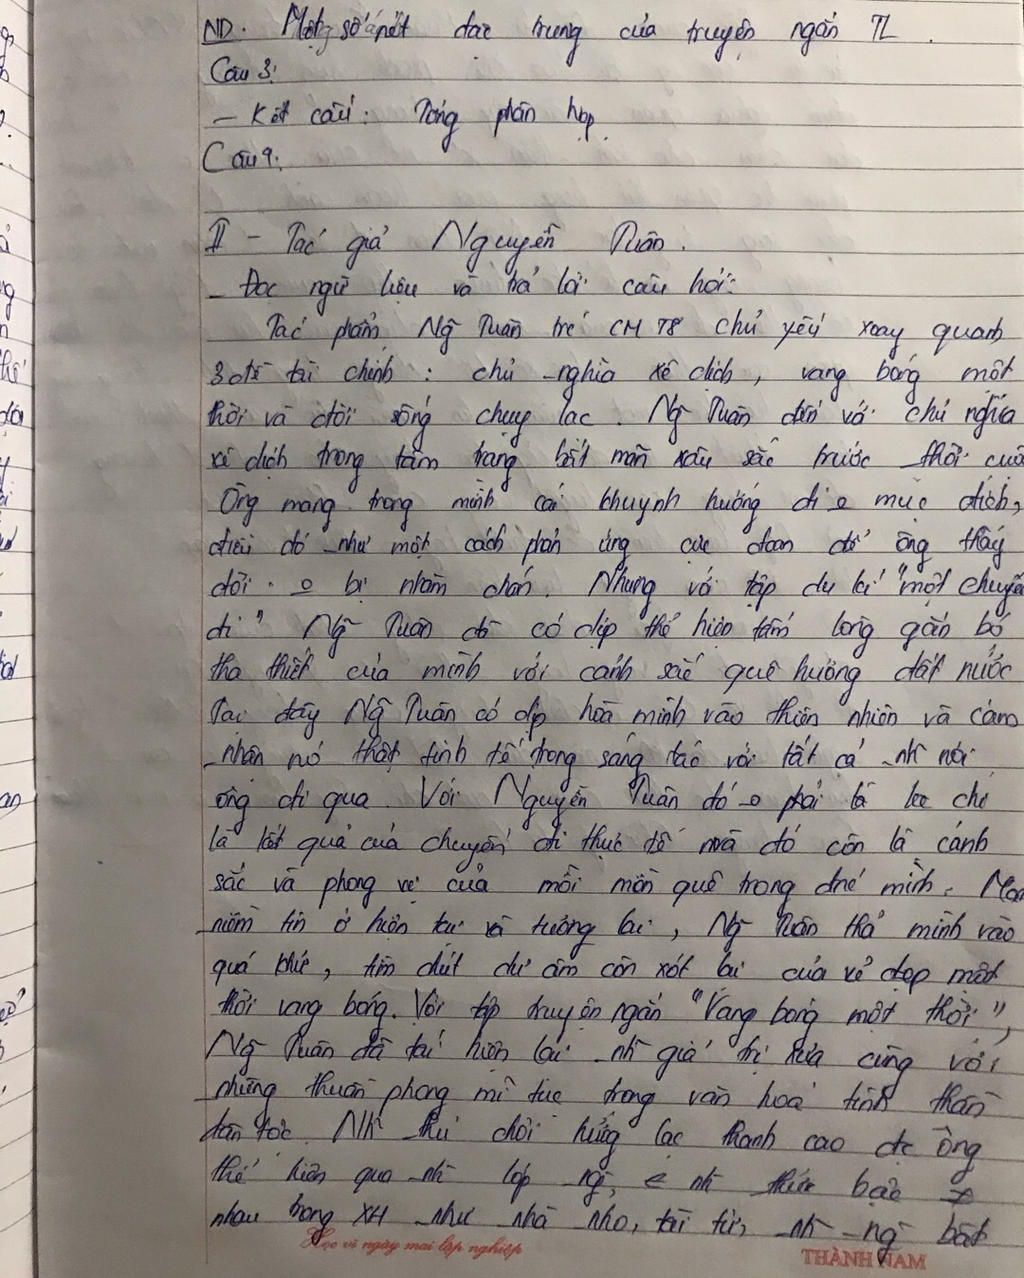 ND. Một số nét đặc trưng của truyện ngắn TL.
Câu 3:
- Kết cấu: Tổng phân hợp.
Câu 4.
II - Tác giả Nguyễn Tuân.
- Đọc ngữ liệu và trả lời câu hỏi:
Tác phẩm Ng̃ Tuân trc CMT8 chủ yếu xoay quanh
3 đề tài chính: chủ nghĩa xê dịch, vang bóng một
thời và đời sống chụy lạc. Ng̃ Tuân đến với chủ nghĩa
xê dịch trong tâm trạng bất mãn sâu sắc trước thời cuộ
Ông mang trong mình cái khuynh hướng đi o mục đích,
điều đó như một cách phản ứng cực đoan để ông thấy
đời o bị nhàm chán. Nhưng với tập du kí "một chuyến
đi" Ng̃ Tuân đã có dịp thể hiện tấm lòng gắn bó
tha thiết của mình với cảnh sắc quê hương đất nước
Tại đây Ng̃ Tuân có dịp hoà mình vào thiên nhiên và cảm
nhận nó thật tinh tế trong sáng tác với tất cả nh̃ nơi
ông đi qua. Với Nguyễn Tuân đó o phải là chỉ
là kết quả của chuyến đi thực tế mà đó còn là cảnh
sắc và phong vị của mỗi miền quê trong đnc mình.
niềm tin ở hiện tại và tương lai, Ng̃ Tuân thả mình vào
quá khứ, tìm chút dư âm còn xót lại của vẻ đẹp một
thời vang bóng. Với tập truyện ngắn "Vang bóng một thời",
Ng̃ Tuân đã tái hiện lại nh̃ giá trị xưa cùng với
những thuần phong mĩ tục trong văn hoá tinh thần
dân tộc. Nh̃ thú chơi hưởng lạc thanh cao đc ông
thể hiện qua nh̃ lớp ng̀, nh̃ thức bậc
nhau trong XH như nhà nho, tài tử, nh̃ ng̀ bất
Học vì ngày mai lập nghiệp
THÀNH NAM